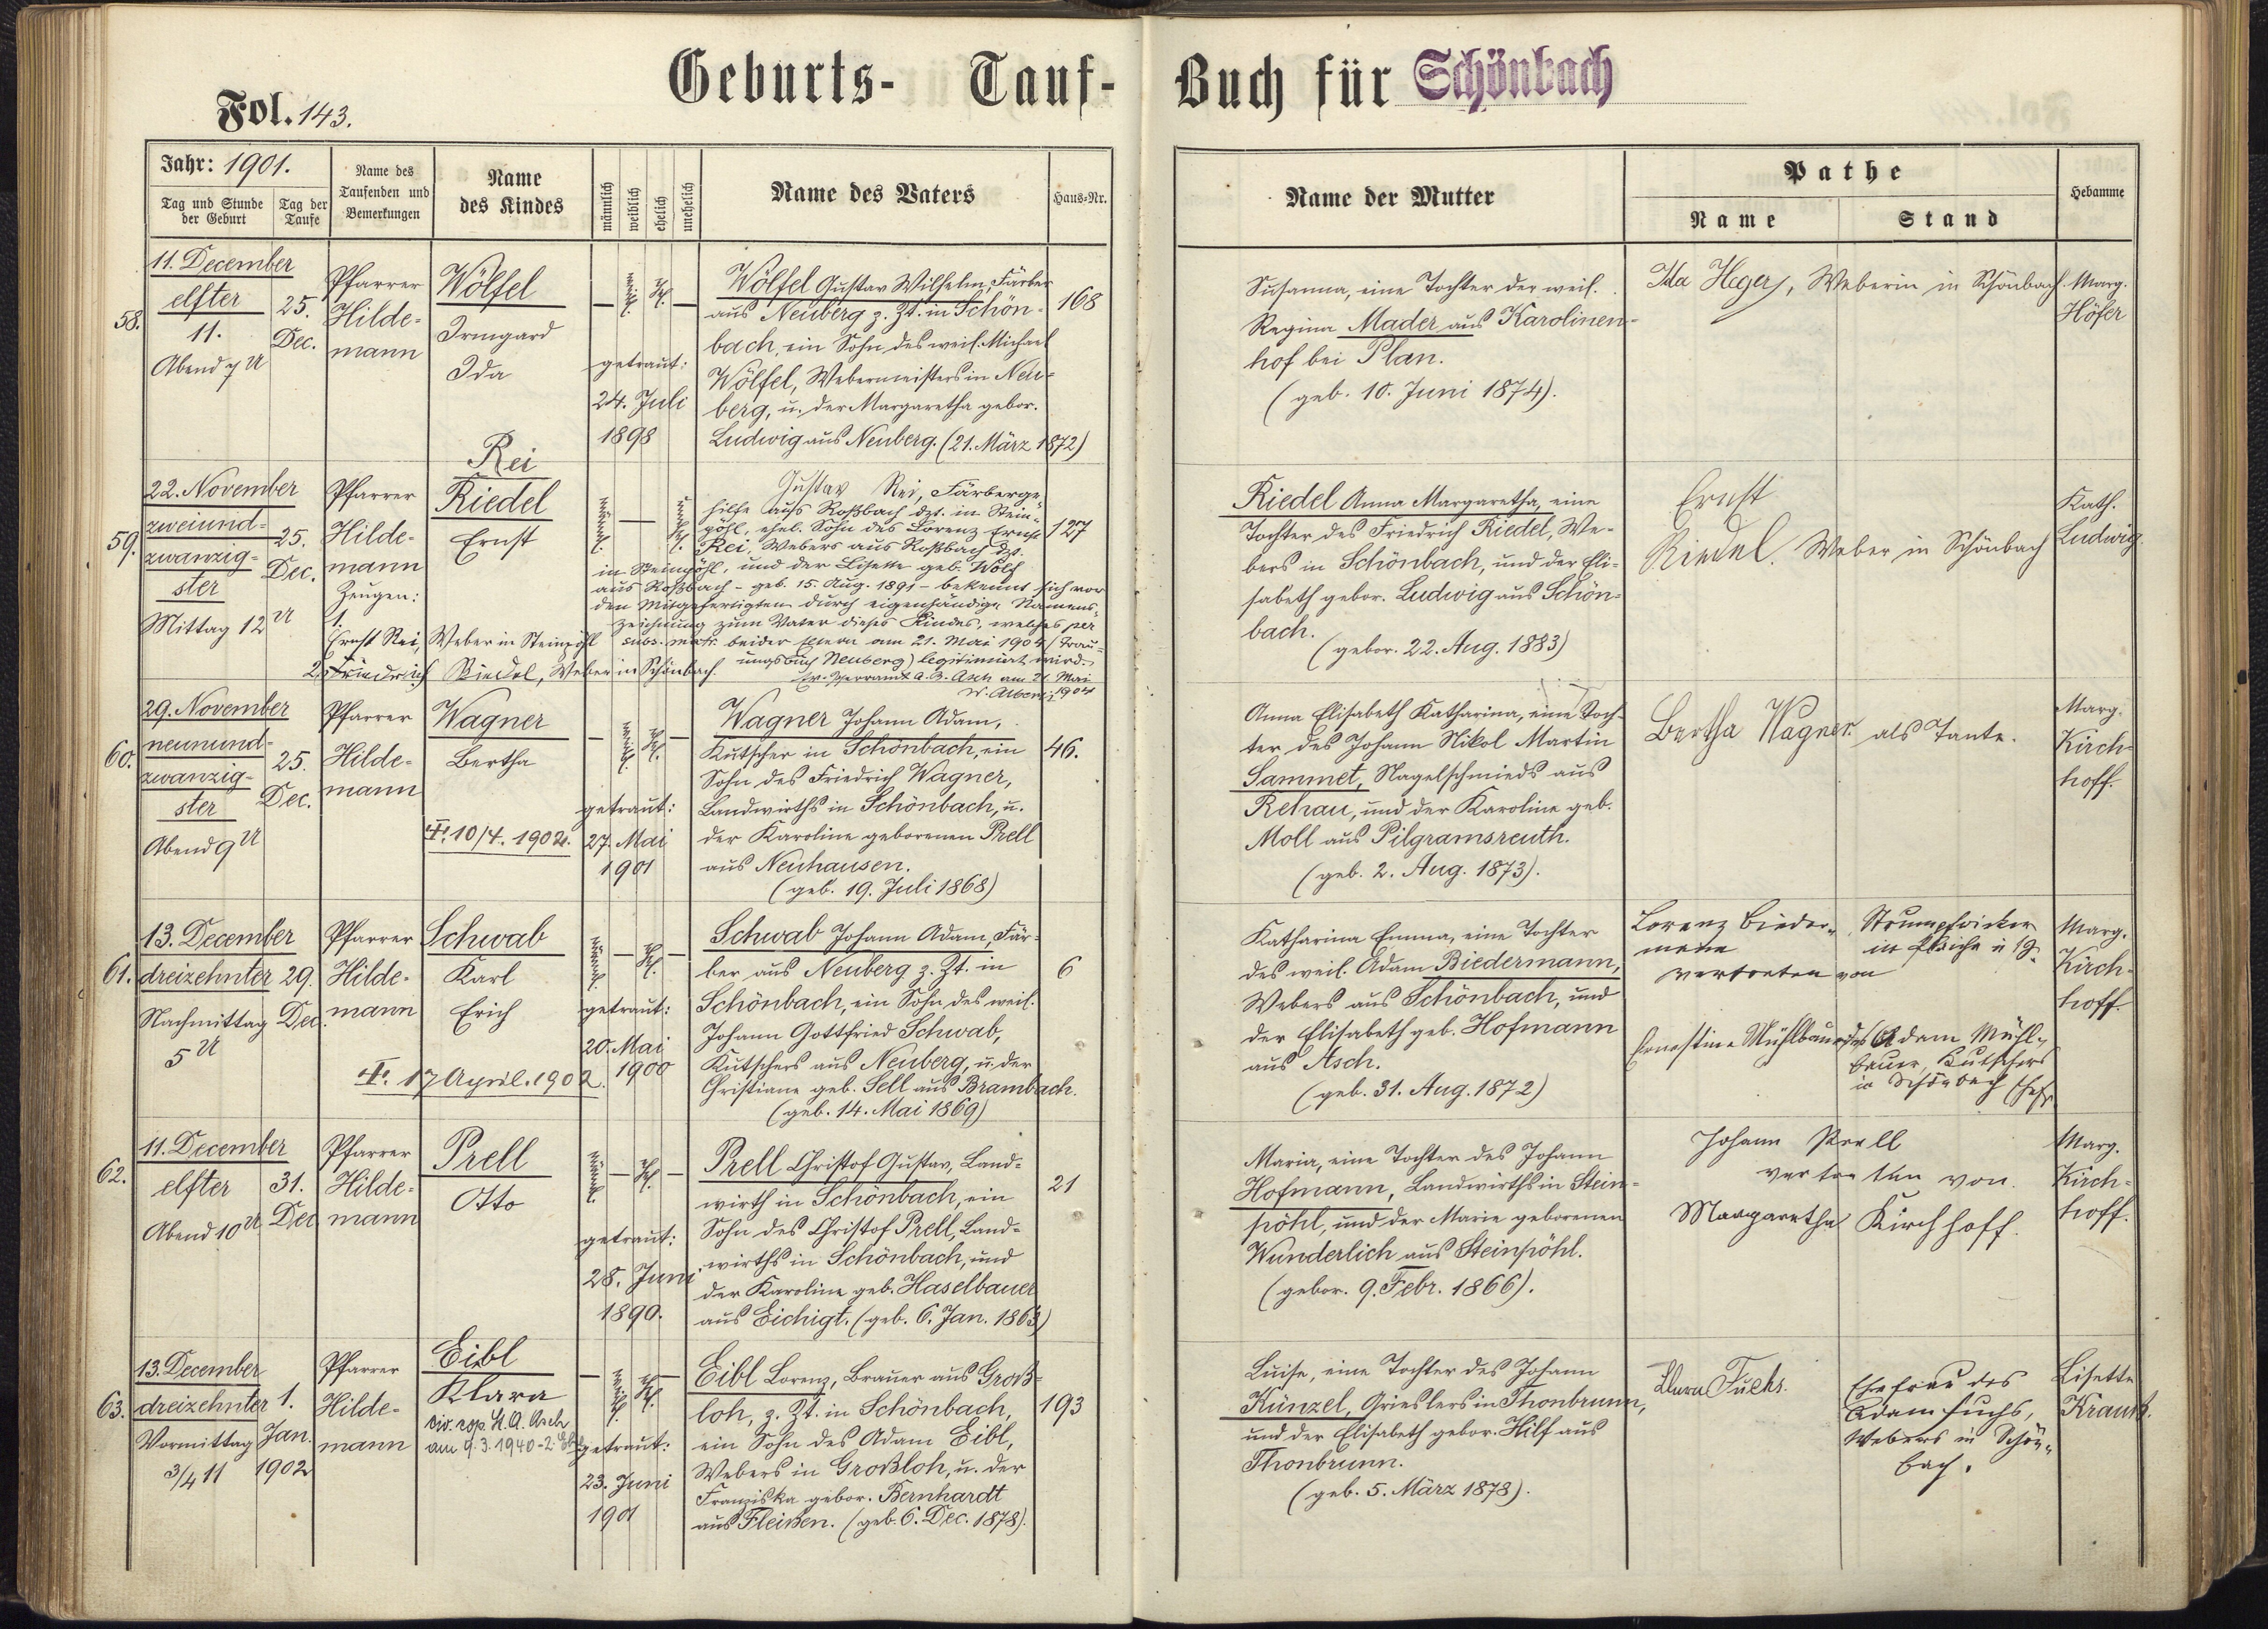 Geburts- Tauf- Buch für Schönbach
Fol. 143.
Jahr: 1901.
Tag und Stunde der Geburt
Tag der Taufe
Name des Taufenden und Bemerkungen
Name des Kindes
männlich
weiblich
ehelich
unehelich
Name des Vaters
Haus-Nr.
Name der Mutter
Pathe
Name
Stand
Hebamme
58.
11. December
elfter
11.
Abend 7 U
25.
Dec.
Pfarrer
Hilde-
mann
Wölfel
Irmgard
Ida
weibl.
ehl.
getraut:
24. Juli
1898
Wölfel Gustav Wilhelm, Färber
aus Neuberg z. Zt. in Schön-
bach, ein Sohn des weil. Michael
Wölfel, Webermeisters in Neu-
berg, u. der Margaretha gebor.
Ludwig aus Neuberg. (21. März 1872)
168
Susanna, eine Tochter der weil.
Regina Mader aus Karolinen-
hof bei Plan.
(geb. 10. Juni 1874).
Ida Heger, Weberin in Schönbach
Marg.
Höfer
59.
22. November
zweiund-
zwanzig-
ster
Mittag 12 U
25.
Dec.
Pfarrer
Hilde-
mann
Zeugen:
1.
Ernst Rei, Weber in Steinpöhl
2. Friedrich Riedel, Weber in Schönbach.
Rei
Riedel
Ernst
männl.
unehl.
Gustav Rei, Färberge-
hilfe aus Roßbach dzt. in Stein-
pöhl, ehel. Sohn des Lorenz Ernst
Rei, Webers aus Roßbach dzt.
in Steinpöhl, und der Lisette geb. Wolf
aus Roßbach - geb. 15. Aug. 1891 - bekennt sich vor
den Mitgefertigten durch eigenhändige Namens-
zeichnung zum Vater dieses Kindes, welches per
subs. matr. beider Eltern am 21. Mai 1904 (Trau-
ungsbuch Neuberg) legitimiert wird.
Ev. Pfarramt A. B. Asch am 21. Mai
1904
127
Riedel Anna Margaretha, eine
Tochter des Friedrich Riedel, We-
bers in Schönbach, und der Eli-
sabeth gebor. Ludwig aus Schön-
bach.
(gebor. 22. Aug. 1883)
Ernst
Riedel. Weber in Schönbach
Kath.
Ludwig.
60.
29. November
neunund-
zwanzig-
ster
Abend 9 U
25.
Dec.
Pfarrer
Hilde-
mann
Wagner
Bertha
✝ 10/4. 1902.
weibl.
ehl.
getraut:
27. Mai
1901
Wagner Johann Adam,
Kutscher in Schönbach, ein
Sohn des Friedrich Wagner,
Landwirths in Schönbach, u.
der Karoline geborenen Prell
aus Neuhausen.
(geb. 19. Juli 1868)
46.
Anna Elisabeth Katharina, eine Toch-
ter des Johann Nikol Martin
Sammet, Nagelschmieds aus
Rehau, und der Karoline geb.
Moll aus Pilgramsreuth.
(geb. 2. Aug. 1873).
Bertha Wagner als Tante.
Marg.
Kirch-
hoff.
61.
13. December
dreizehnter
Nachmittag
5 U
29.
Dec.
Pfarrer
Hilde-
mann
Schwab
Karl
Erich
✝ 17 April. 1902.
männl.
ehl.
getraut:
20. Mai
1900
Schwab Johann Adam, Fär-
ber aus Neuberg z. Zt. in
Schönbach, ein Sohn des weil.
Johann Gottfried Schwab,
Kutschers aus Neuberg, u. der
Christiane geb. Sell aus Brambach.
(geb. 14. Mai 1869)
6
Katharina Emma, eine Tochter
des weil. Adam Biedermann,
Webers aus Schönbach, und
der Elisabeth geb. Hofmann
aus Asch.
(geb. 31. Aug. 1872)
Lorenz Bieder-
mann
vertreten von
Ernestine Mühlbauer
Strumpfwirker
in
des Adam Mühl-
bauer, Kutschers
in Schönbach
Marg.
Kirch-
hoff.
62.
11. December
elfter
Abend 10 U
31.
Dec
Pfarrer
Hilde-
mann
Prell
Otto
männl.
ehl.
getraut:
28. Juni
1890.
Prell Christof Gustav, Land-
wirth in Schönbach, ein
Sohn des Christof Prell, Land-
wirths in Schönbach, und
der Karoline geb. Haselbauer
aus Eichigt. (geb. 6. Jan. 1863)
21
Maria, eine Tochter des Johann
Hofmann, Landwirths in Stein-
pöhl, und der Marie geborenen
Wunderlich aus Steinpöhl.
(gebor. 9. Febr. 1866).
Johann Prell
vertreten von
Margaretha Kirchhoff.
Marg.
Kirch-
hoff.
63.
13. December
dreizehnter
Vormittag
3/4 11
1.
Jan.
1902
Pfarrer
Hilde-
mann
Eibl
Klara
civ. cop. St. A. Asch
am 9.3.1940 - 2. Ehe
weibl.
ehl.
getraut:
23. Juni
1901
Eibl Lorenz, Brauer aus Groß-
loh, z. Zt. in Schönbach,
ein Sohn des Adam Eibl,
Webers in Großloh, u. der
Franziska gebor. Bernhardt
aus Fleißen. (geb. 6. Dec. 1878).
193
Luise, eine Tochter des Johann
Künzel, Grieslers in Thonbrunn,
und der Elisabeth gebor. Hilf aus
Thonbrunn.
(geb. 5. März 1878).
Fuchs.
Ehefrau des
Adam Fuchs,
Webers in Schön-
bach.
Lisette
Krauß.